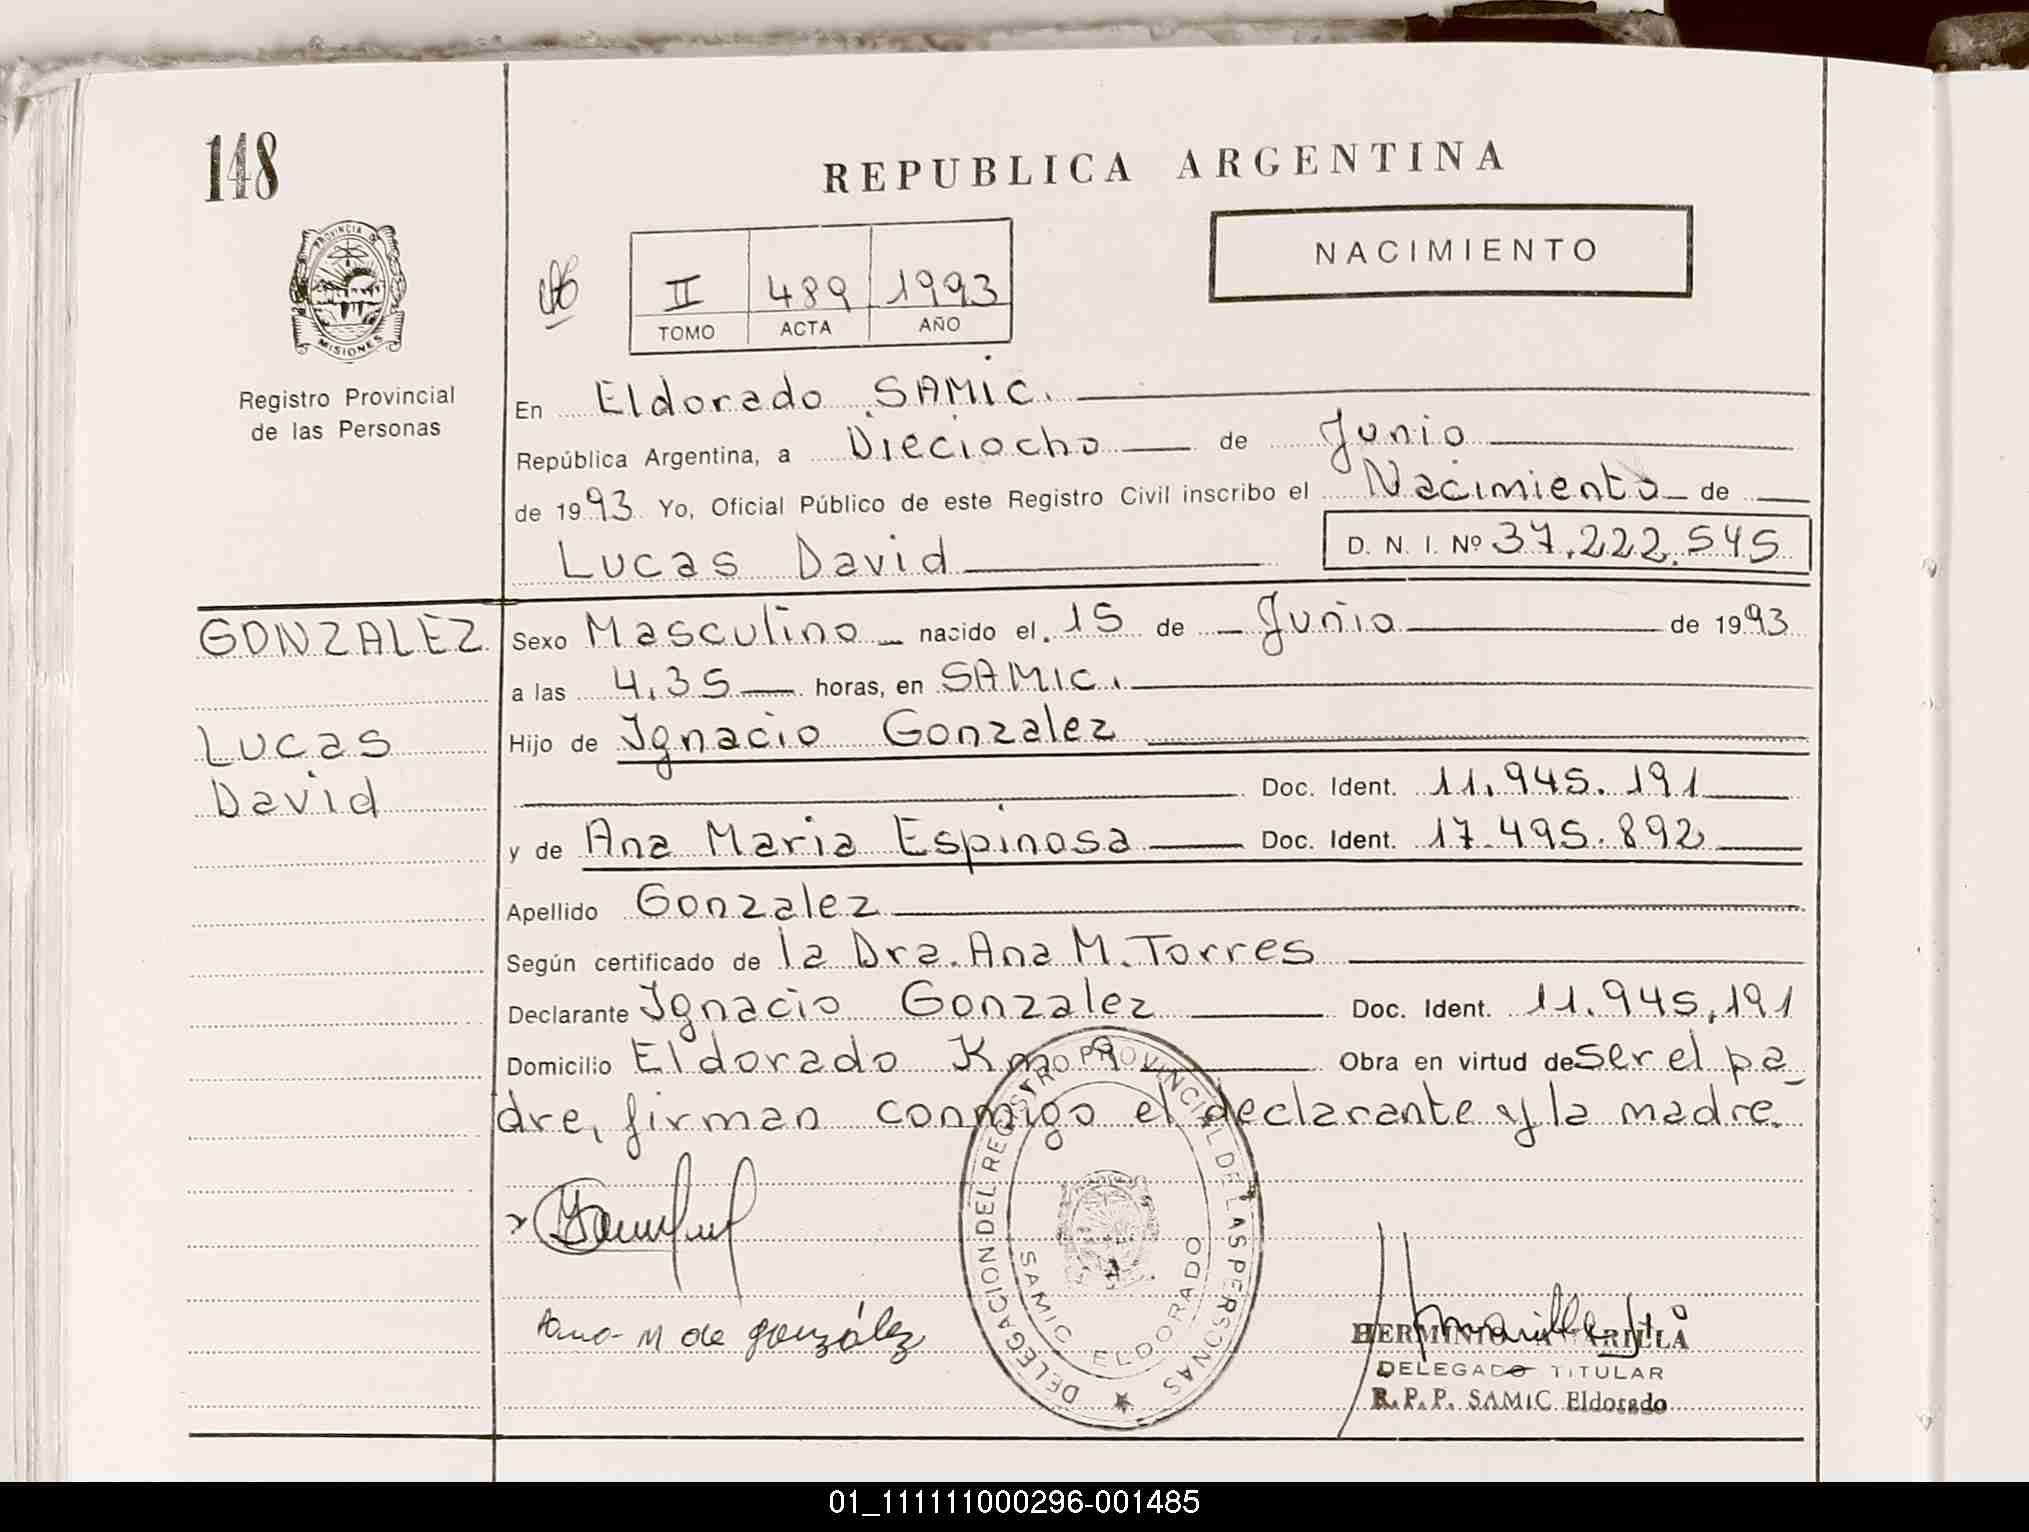 148
REPUBLICA ARGENTINA
PROVINCIA DE
MISIONES
NACIMIENTO
II 489 1993
TOMO ACTA AÑO
Registro Provincial
de las Personas
En Eldorado SAMIC.
República Argentina, a Dieciocho de Junio
de 1993 Yo, Oficial Público de este Registro Civil inscribo el Nacimiento de
Lucas David D. N. I. Nº 37.222.545
GONZALEZ
Lucas
David
Sexo Masculino nacido el 15 de Junio de 1993
a las 4,35 horas, en SAMIC.
Hijo de Ignacio Gonzalez
Doc. Ident. 11.945.191
y de Ana Maria Espinosa Doc. Ident. 17.495.892
Apellido Gonzalez
Según certificado de la Dra. Ana M. Torres
Declarante Ignacio Gonzalez Doc. Ident. 11.945,191
Domicilio Eldorado Km 9 Obra en virtud de ser el pa_
dre, firman conmigo el declarante y la madre.
DELEGACION DEL REGISTRO PROVINCIAL DE LAS PERSONAS
SAMIC ELDORADO
Ana M de gonzález
HERMINIO A MARILLA
DELEGADO TITULAR
R.P.P. SAMIC Eldorado
01_111111000296-001485